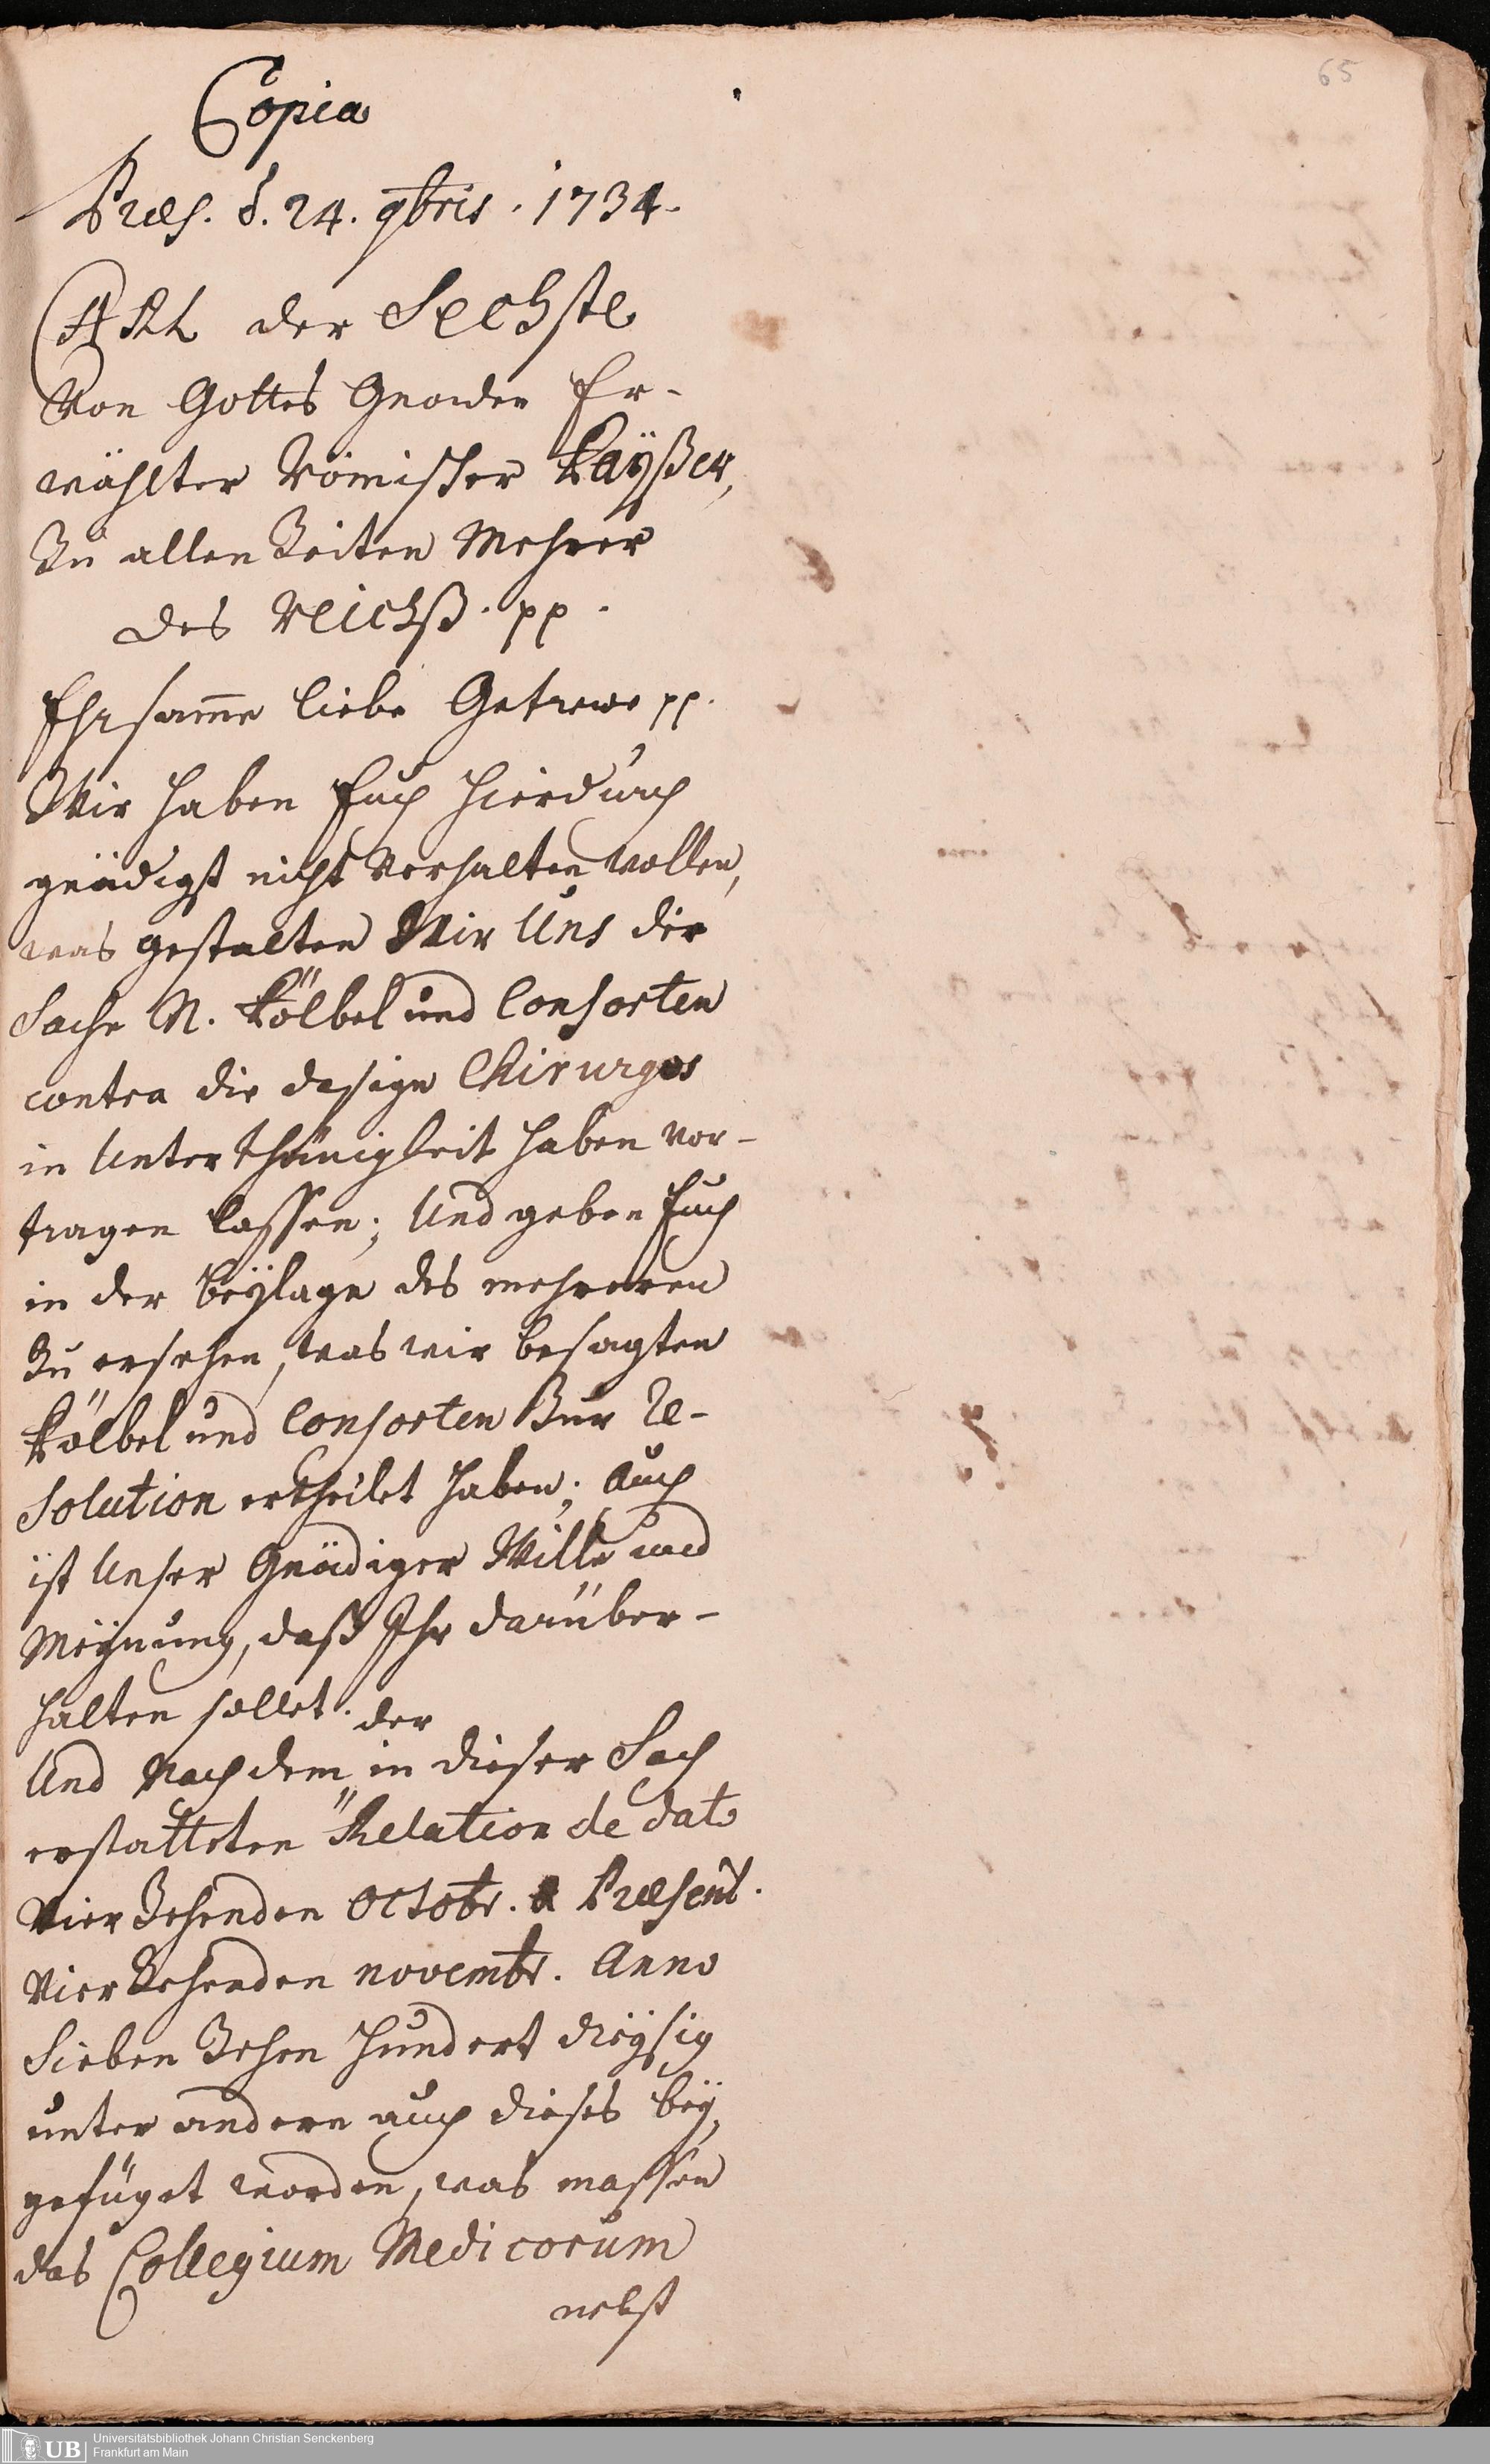 65
Copia
Præs. d. 24. 9bris. 1734.
CARL der Sechste
Von Gottes Gnaden Er-
wählter Römischer Kayßer,
Zu allen Zeiten Mehrer
des Reichß. pp.
Ehrsamme liebe Getrewe pp.
Wir haben Euch hierdurch
gnädigst nicht Verhalten wollen,
was gestalten Wir Uns die
Sache N. Kölbel und Consorten
contra die dasige Chirurgos
in Unterthänigkeit haben vor-
tragen lassen; Und geben Euch
in der beÿlage des mehreren
Zu ersehen, was wir besagten
Kölbel und Consorten Zur Re-
solution ertheilet haben; Auch
ist Unser Gnädiger Wille und
Meÿnung, daß Ihr darüber-
halten sollet.
Und Nach dem in dieser Sach der
erstatteten Relation de dato
Vier Zehenden Octobr. & Præsent.
Vier Zehenden novembr. Anno
Sieben Zehen Hundert dreÿsig
unter andern auch dieses beÿ,
gefüget worden, was massen
das Collegium Medicorum
nebst
UB
Universitätsbibliothek Johann Christian Senckenberg
Frankfurt am Main